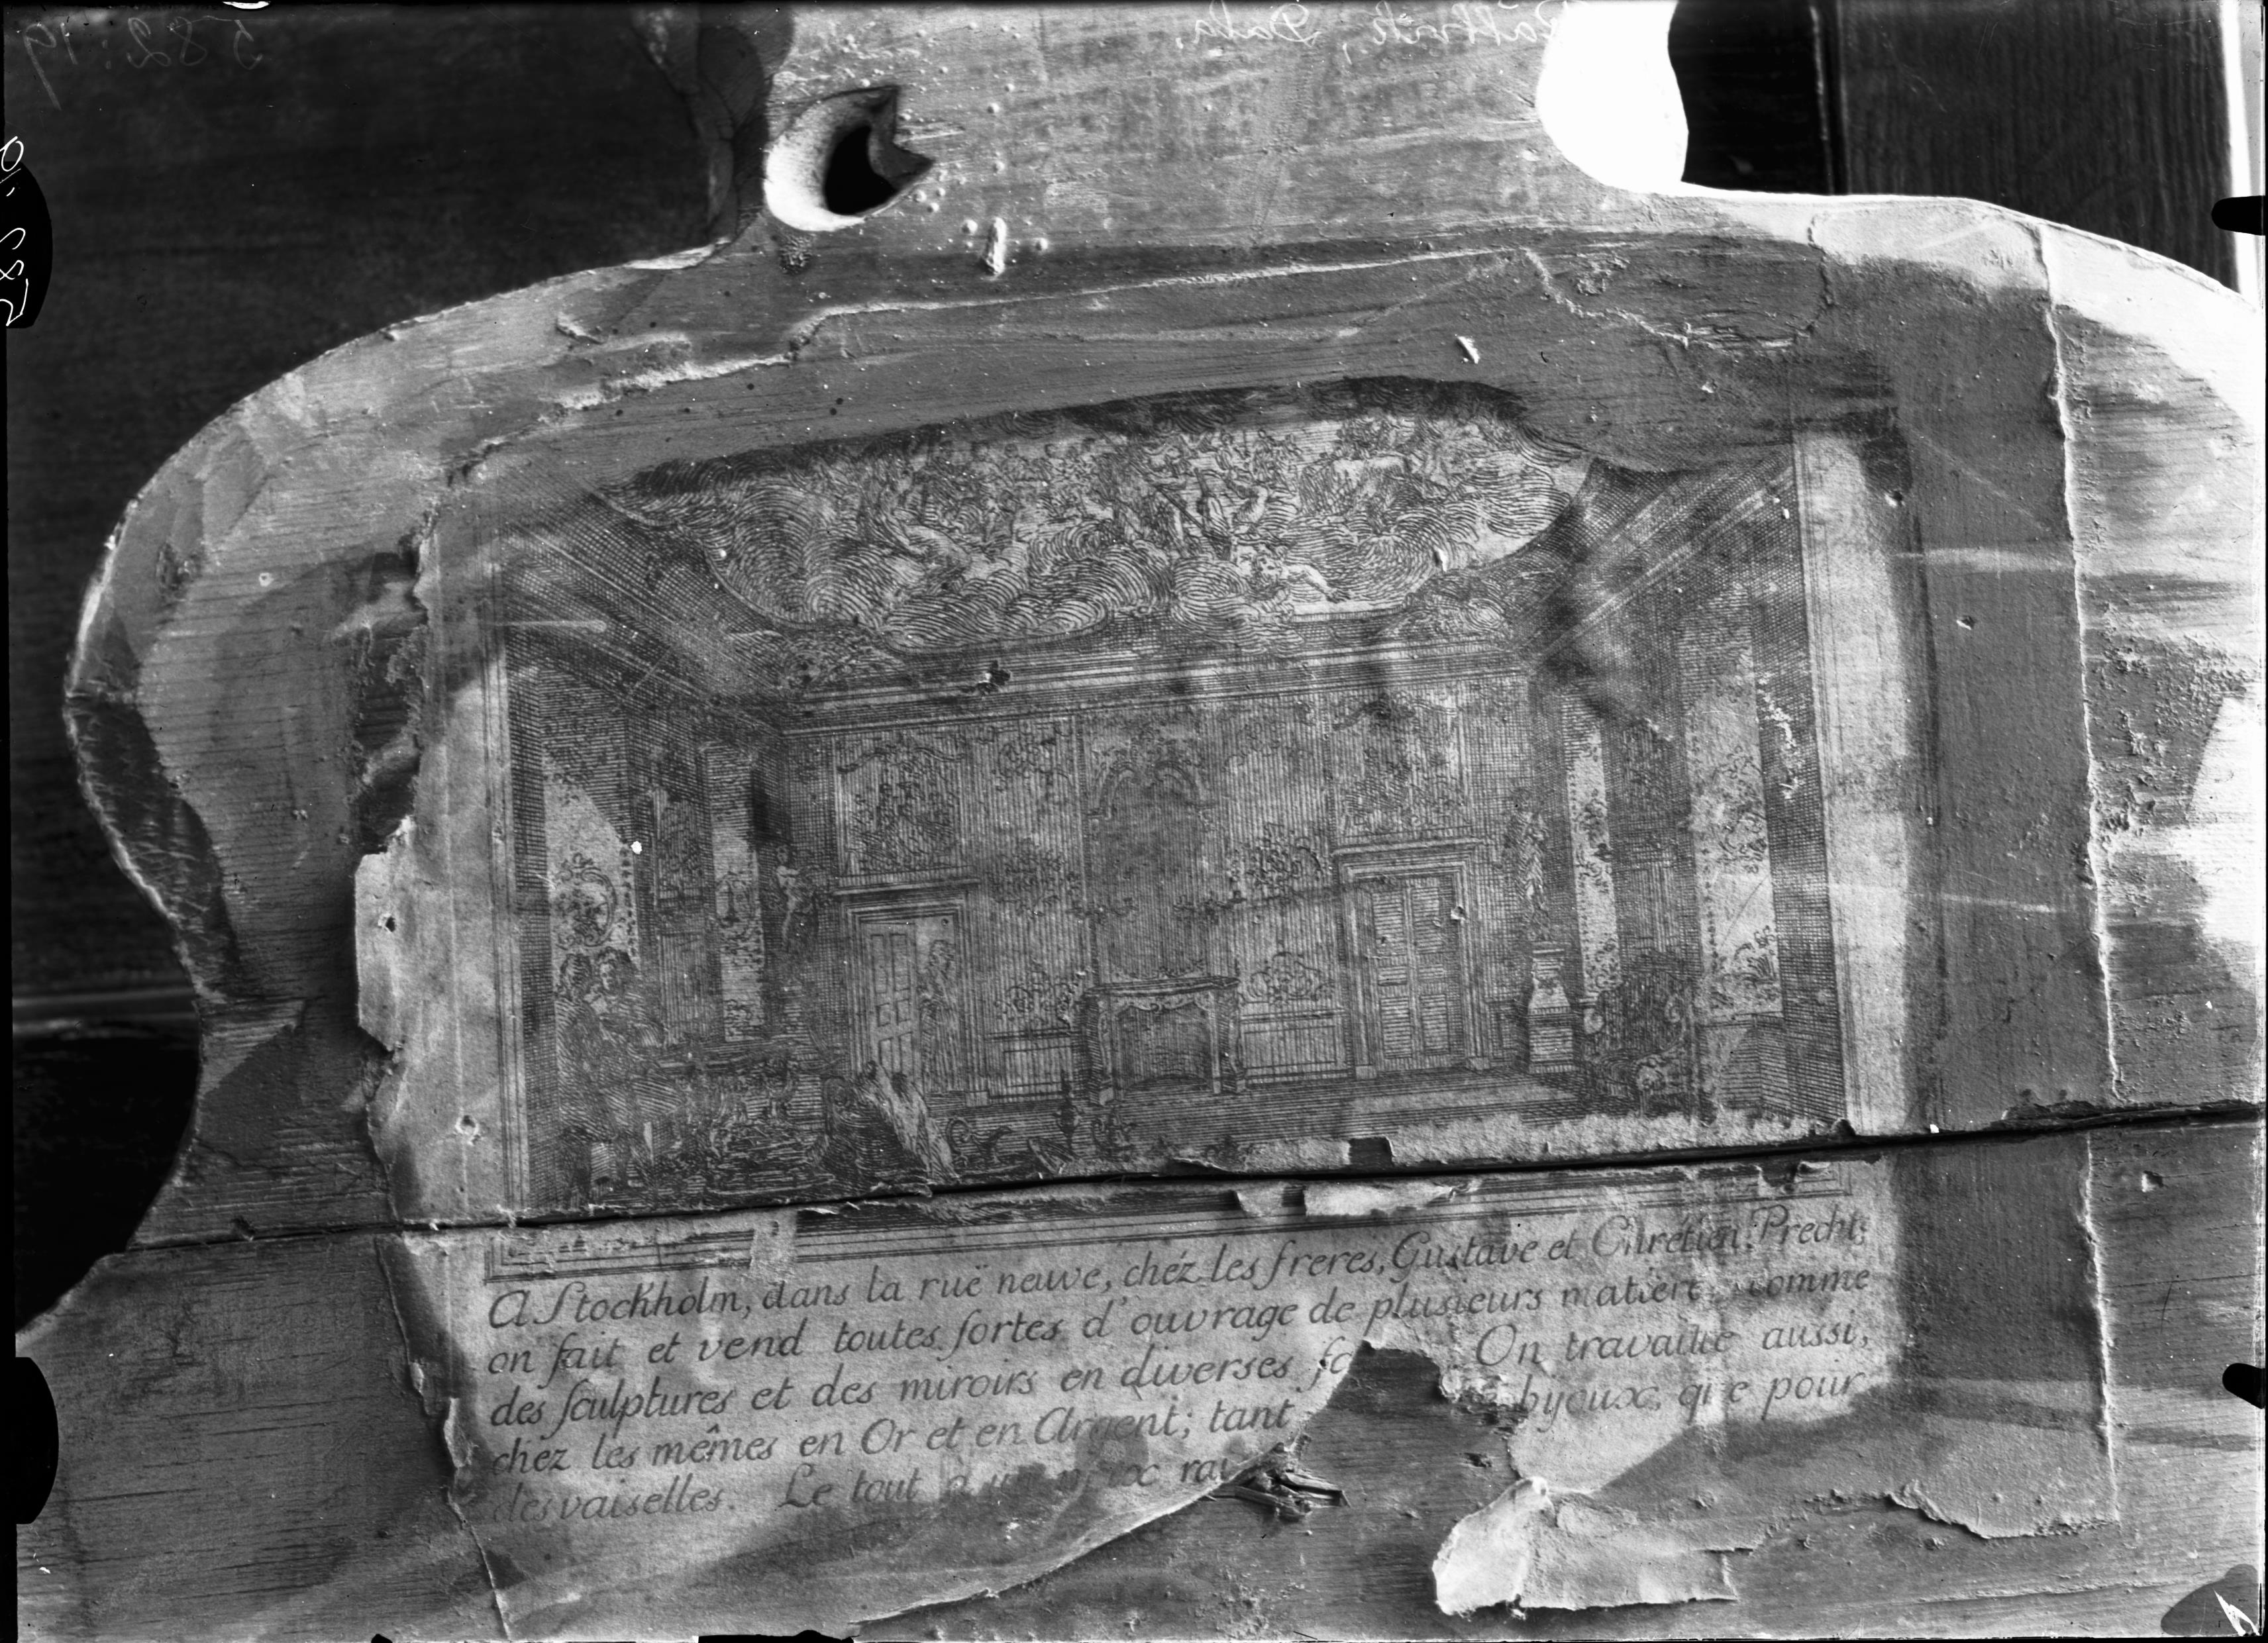 582:19
Dala.
582:9
A Stockholm, dans la ruë neuve, chéz les freres, Gustave et Chrétien Precht:
on fait et vend toutes sortes d'ouvrage de plusieurs matiere comme
des sculptures et des miroirs en diverses On travaille aussi,
chez les mêmes en Or et en Argent; tant bijoux, que pour
des vaiselles. Le tout